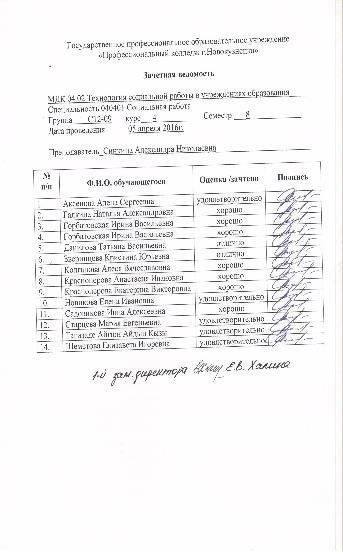 Государственное профессиональное образовательное учреждение
«Профессиональный колледж г.Новокузнецка»
Зачетная ведомость
МДК 04.02 Технология социальной работы в учреждениях образования
Специальность 040401 Социальная работа
Группа С12-09 курс 4 Семестр 8
Дата проведения 05 апреля 2016г.
Преподаватель Александра Николаевна
№ п/п Ф.И.О. обучающегося Оценка /зачтено Подпись
Аксенова Алена Сергеевна удовлетворительно
2. Галкина Наталья Александровна хорошо
3. Горбатовская Ирина Васильевна хорошо
4. Горбатовская Ирина Васильевна хорошо
5. Данилова Татьяна Васильевна отлично
6. Кристина Юрьевна отлично
7. Алеся Вячеславовна хорошо
8. Красноперова Анастасия Ивановна хорошо
Красноперова Екатерина Викторовна хорошо
10. Новикова Елена Ивановна удовлетворительно
11. Садовникова Инна Алексеевна хорошо
12. Старцева Мария Евгеньевна удовлетворительно
13. Айгюн Айдын Кызы удовлетворительно
14. Шеметова Елизавета Игоревна удовлетворительно
1-й зам. директора Е.В. Халина